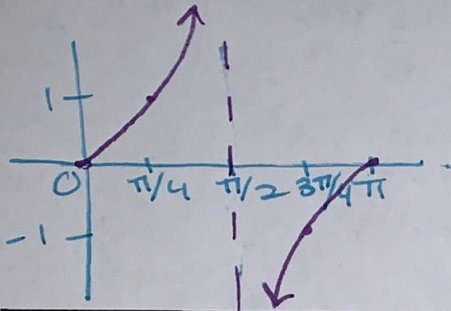 1
0 π/4 π/2 3π/4 π
-1